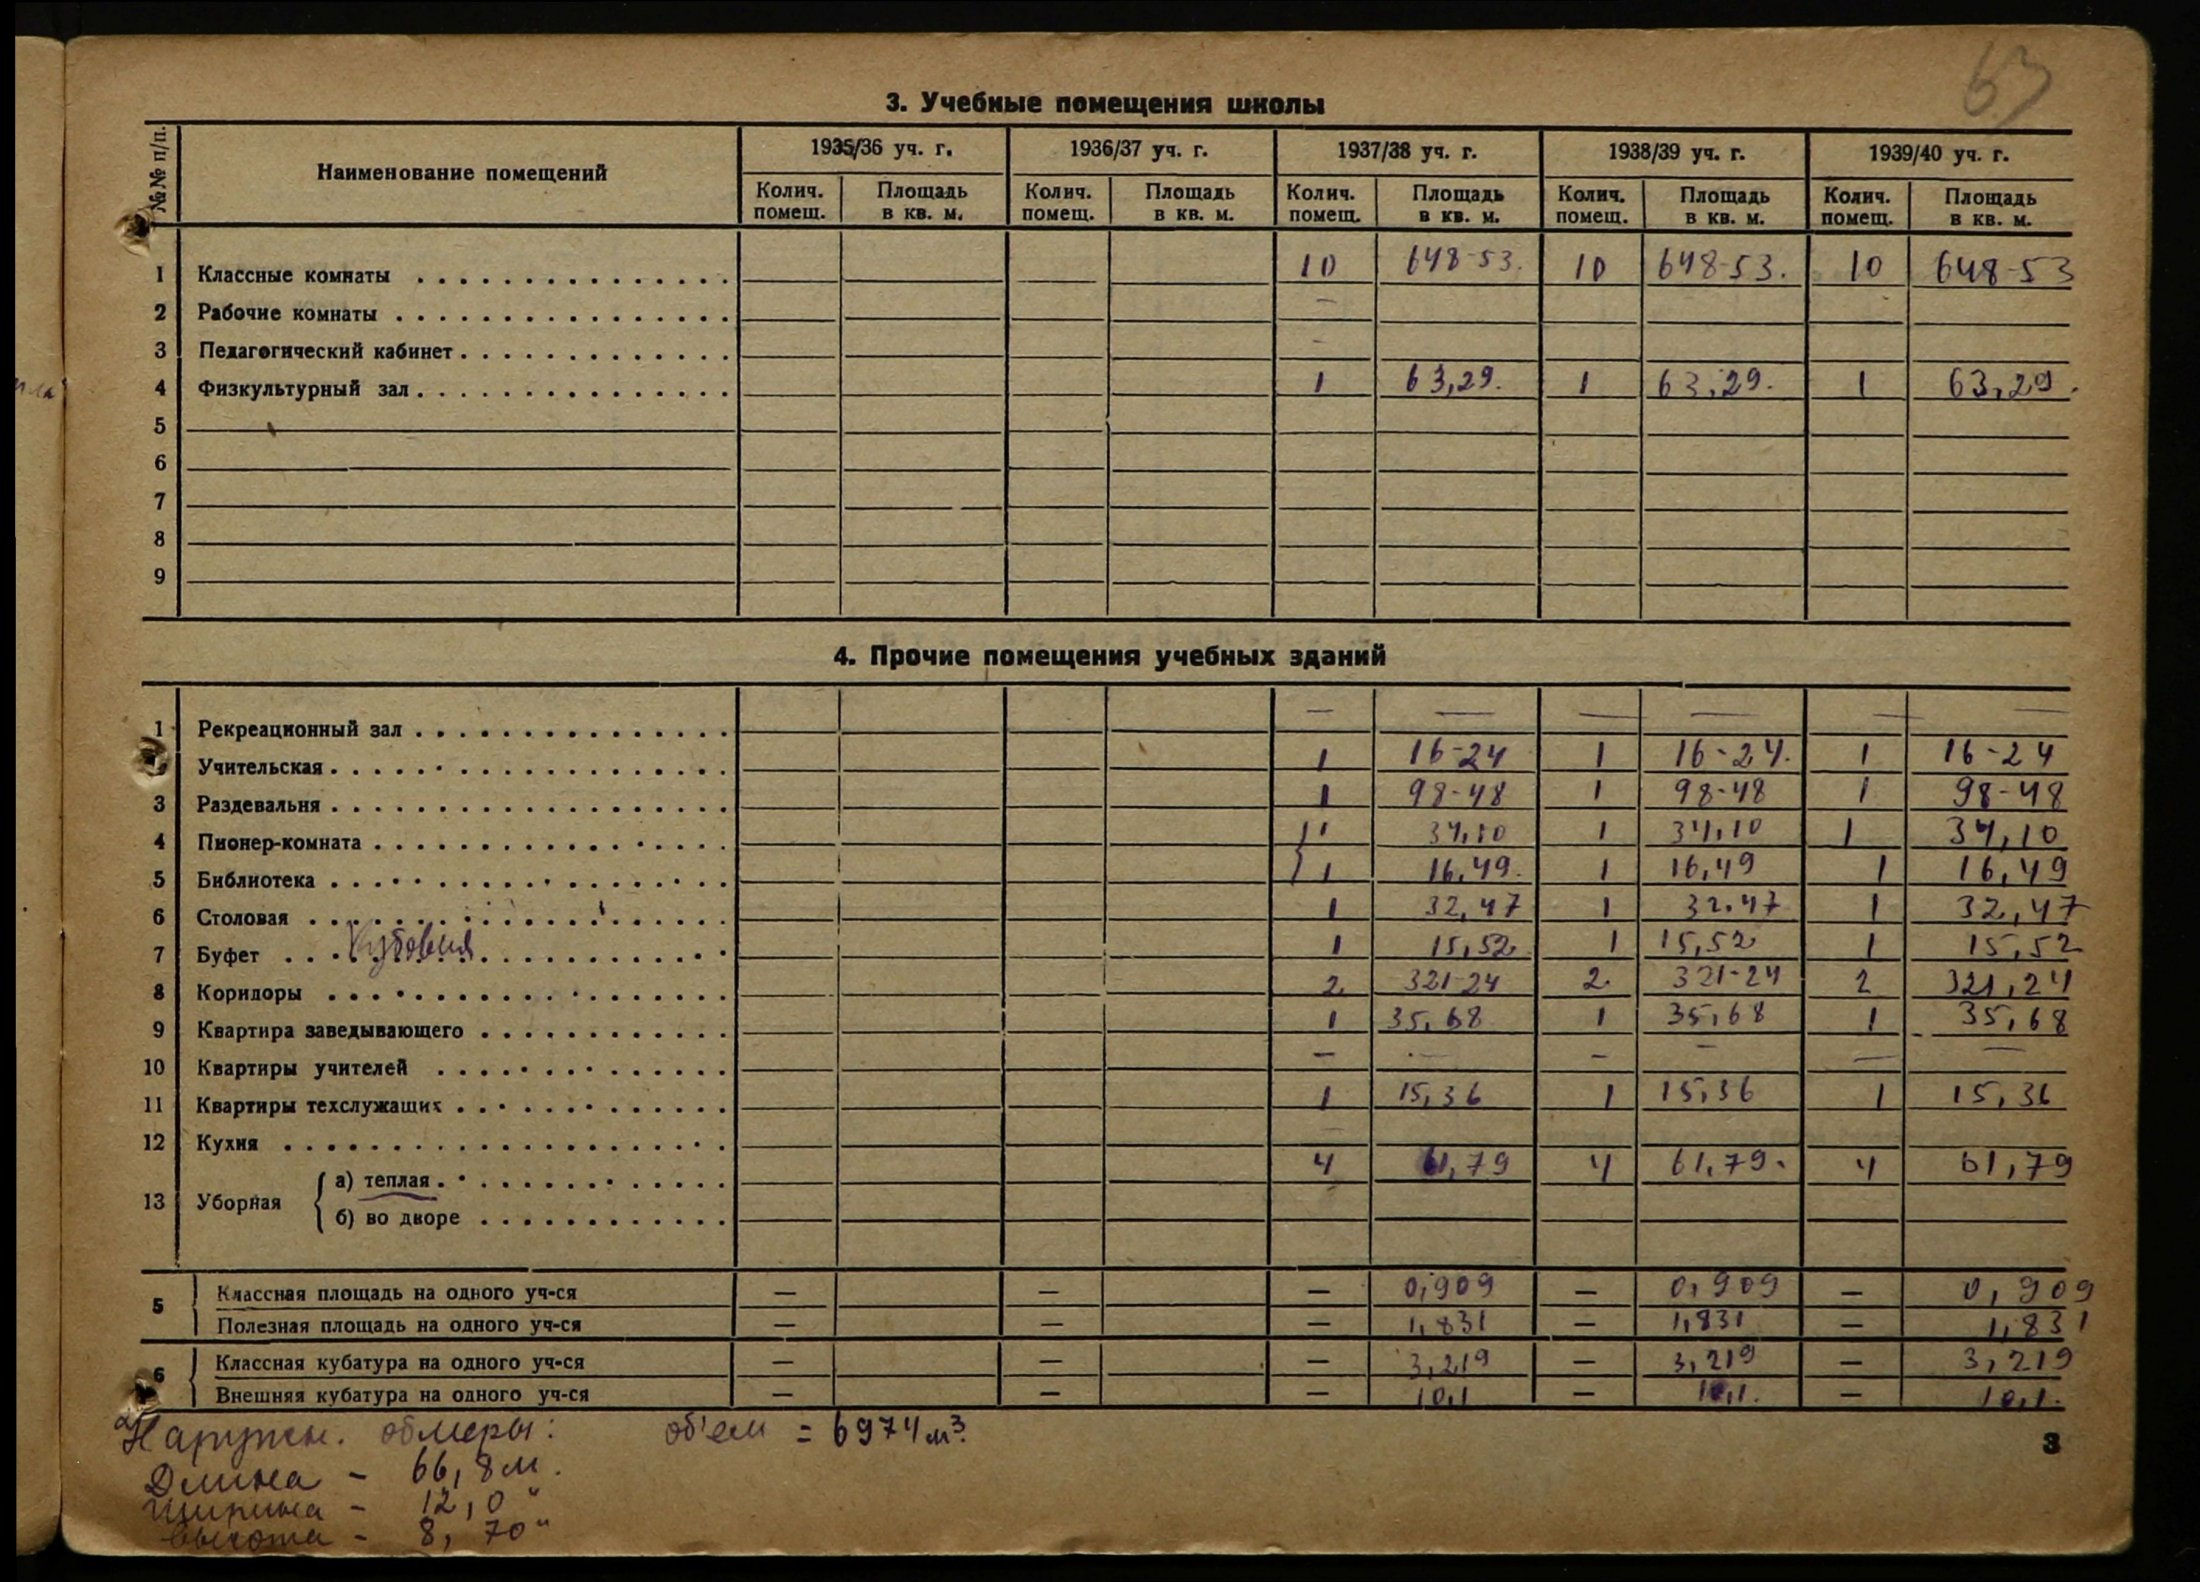 63
3. Учебные помещения школы
№№ п/п. Наименование помещений 1935/36 уч. г. 1936/37 уч. г. 1937/38 уч. г. 1938/39 уч. г. 1939/40 уч. г.
Колич. помещ. Площадь в кв. м. Колич. помещ. Площадь в кв. м. Колич. помещ. Площадь в кв. м. Колич. помещ. Площадь в кв. м. Колич. помещ. Площадь в кв. м.
1 Классные комнаты 10 648-53. 10 648-53. 10 648-53
2 Рабочие комнаты —
3 Педагогический кабинет —
4 Физкультурный зал 1 63,29. 1 63,29. 1 63,29.
5
6
7
8
9
4. Прочие помещения учебных зданий
1 Рекреационный зал — — — — — —
Учительская 1 16-24 1 16-24. 1 16-24
3 Раздевальня 1 98-48 1 98-48 1 98-48
4 Пионер-комната 1 34,10 1 34,10 1 34,10
5 Библиотека 1 16,49. 1 16,49 1 16,49
6 Столовая 1 32,47 1 32.47 1 32,47
7 Буфет Кубовая 1 15,52 1 15,52 1 15,52
8 Коридоры 2 321-24 2. 321-24 2 321,24
9 Квартира заведывающего 1 35,68 1 35,68 1 35,68
10 Квартиры учителей — — — — — —
11 Квартиры техслужащих 1 15,36 1 15,36 1 15,36
12 Кухня
13 Уборная а) теплая 4 61,79 4 61,79. 4 61,79
б) во дворе
5 Классная площадь на одного уч-ся — — — 0,909 — 0,909 — 0,909
Полезная площадь на одного уч-ся — — — 1,831 — 1,831 — 1,831
6 Классная кубатура на одного уч-ся — — — 3,219 — 3,219 — 3,219
Внешняя кубатура на одного уч-ся — — — 10,1 — 10,1. — 10,1.
Наружн. обмеры: об'ем = 6974 м³.
Длина - 66,8 м.
Ширина - 12,0 "
Высота - 8,70 "
3